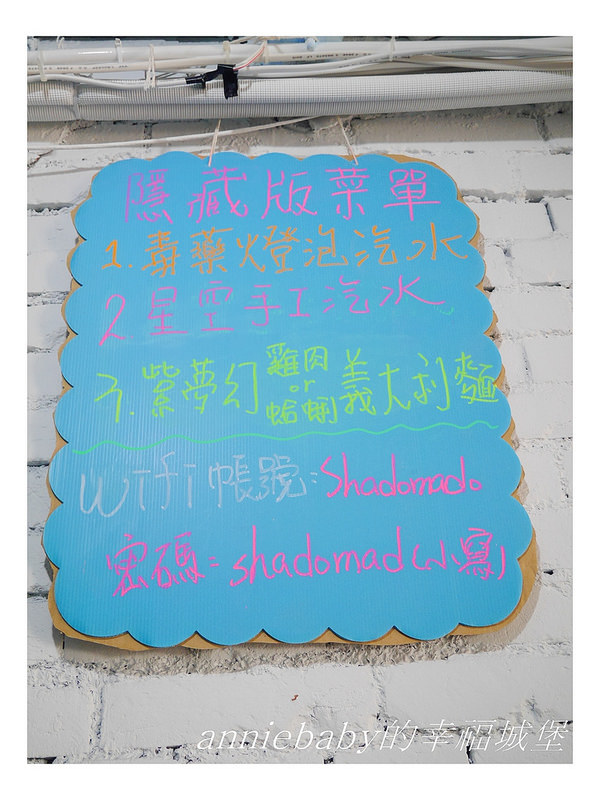 隱藏版菜單
1.毒藥燈泡汽水
2星空手工汽水
3.紫夢幻雞肉or蛤蜊義大利麵
Wifi帳號:Shadomado
密碼=shadomad(小寫)
anniebaby的幸福城堡